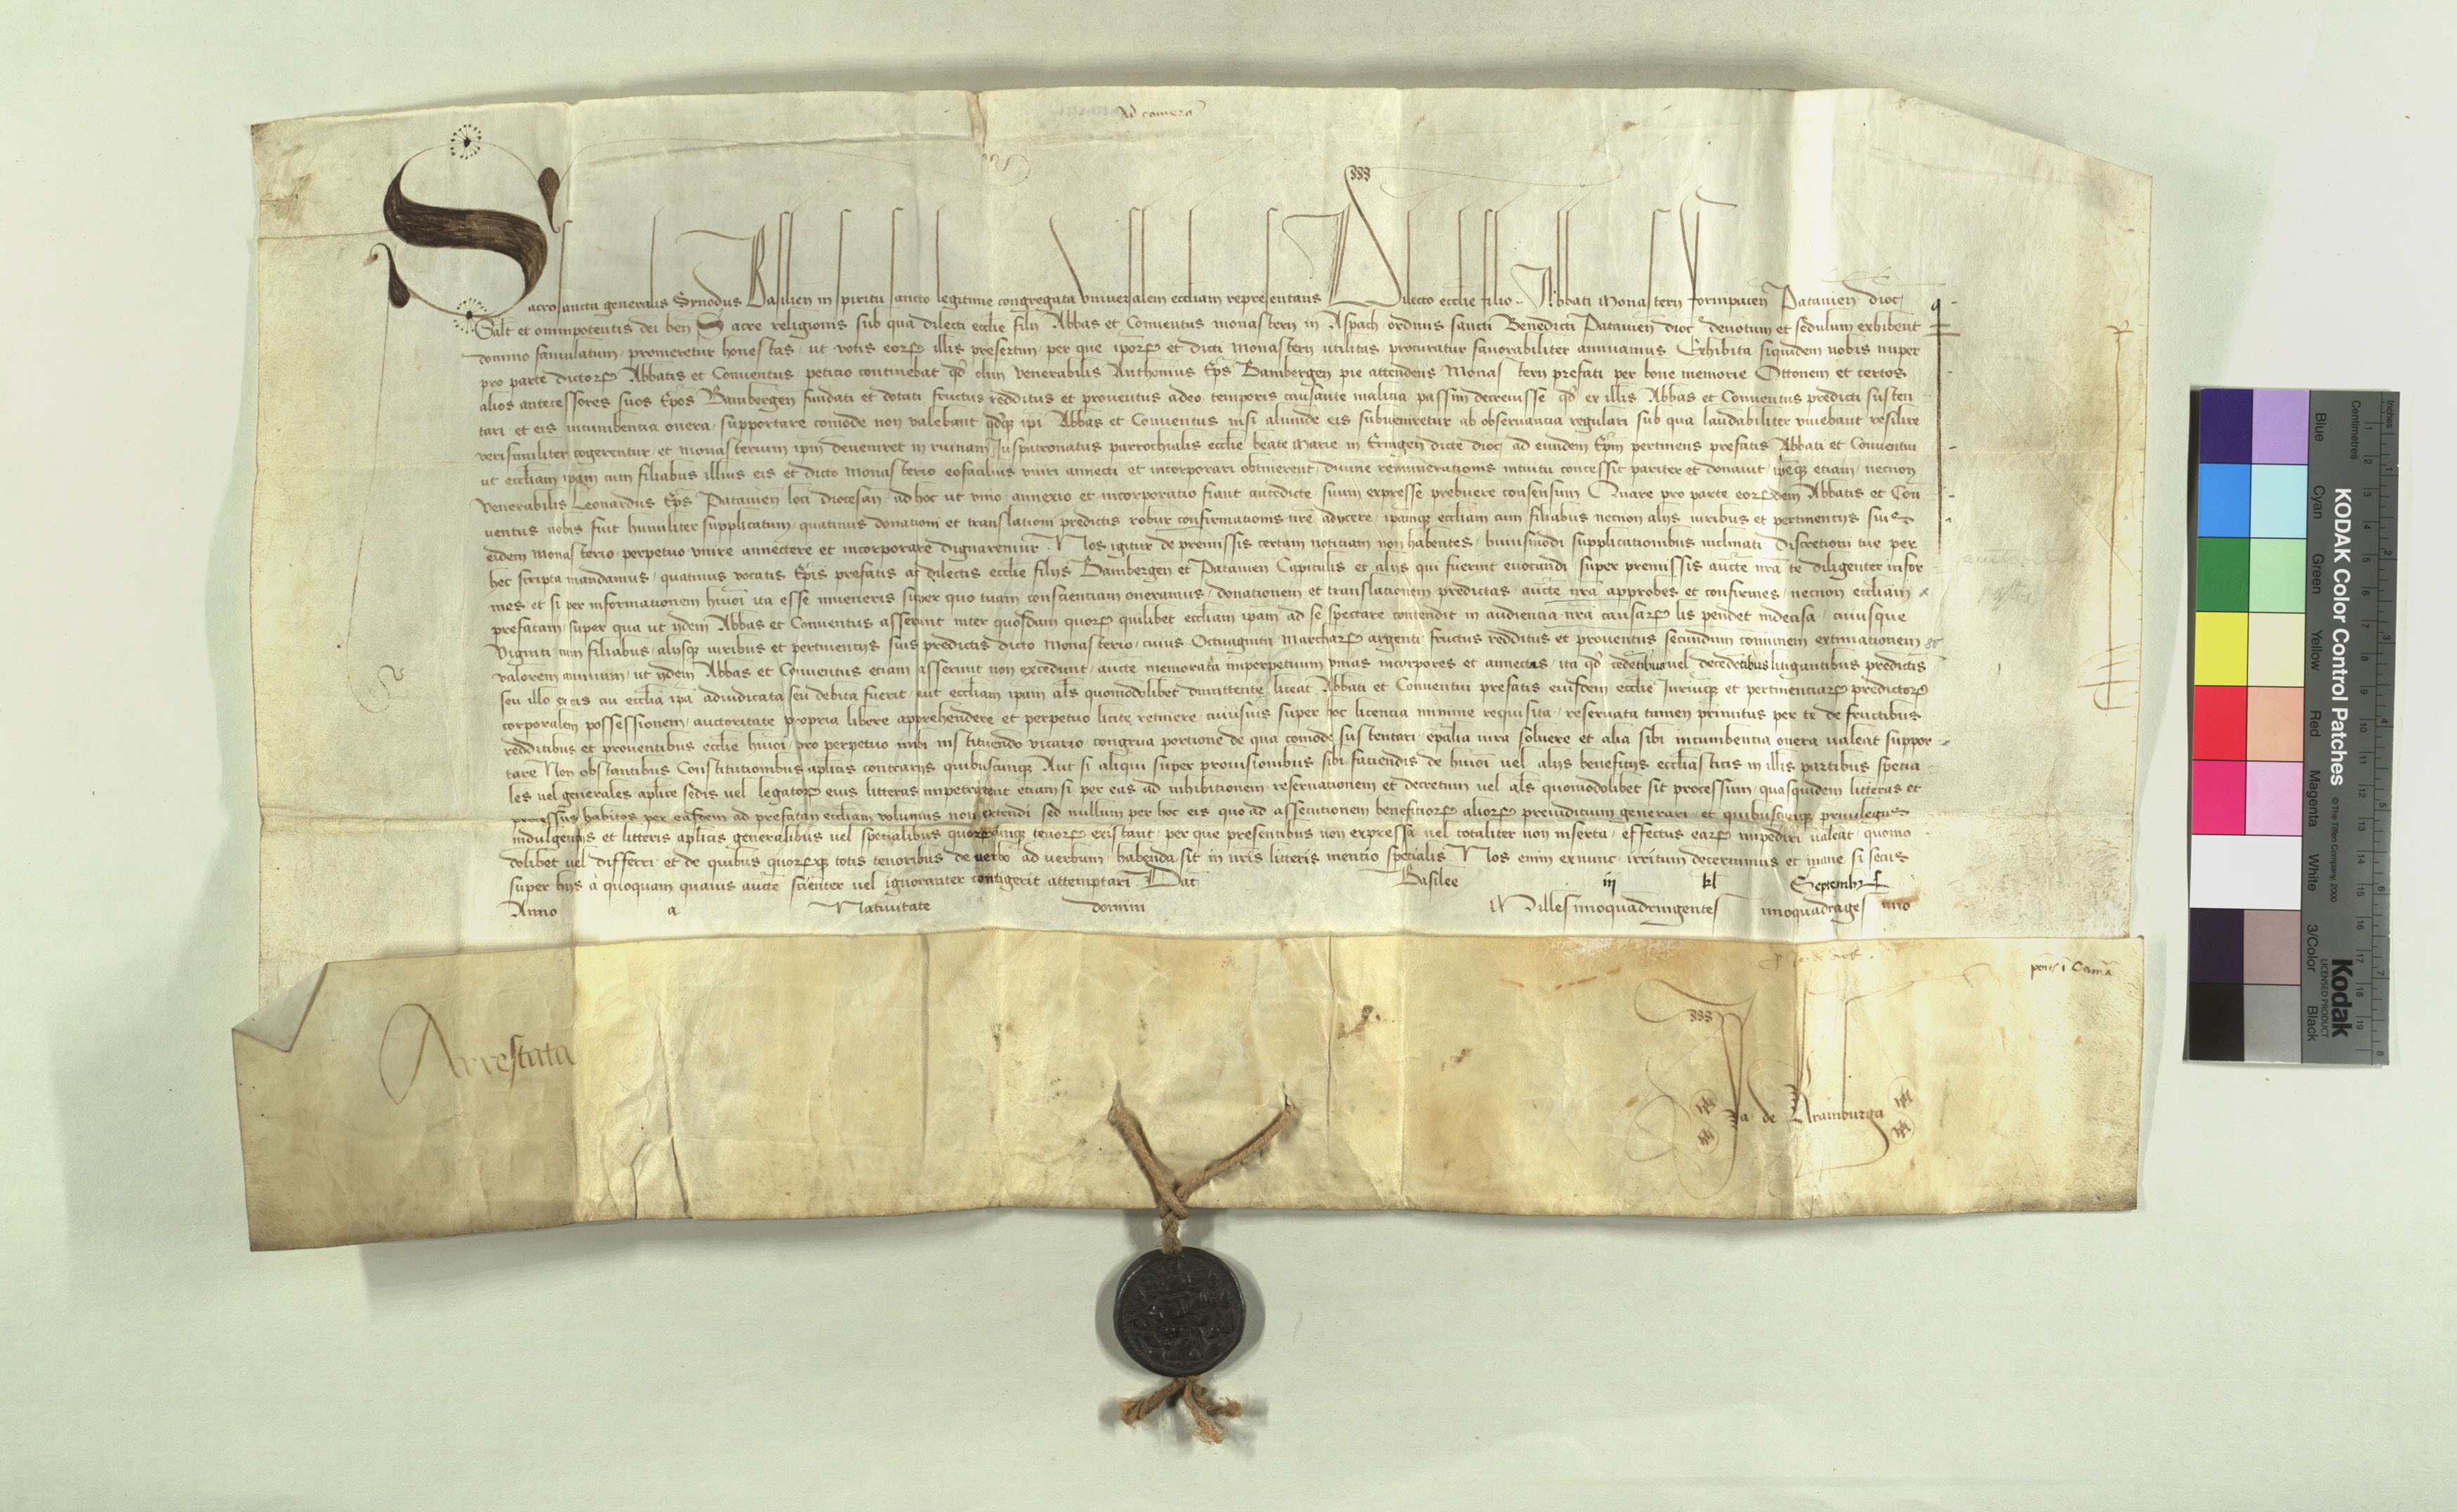 Ad camerā
Sacrosancta generalis Synodus Basilieñ in spiritu sancto legitime congregata vniuersalem eccliam representans Dilecto ecclie filio .. Abbati Monasterij Formpaceñ Patauieñ dioc̄
Salt̄ et omnipotentis dei beñ Sacre religionis sub qua dilecti ecclie filij Abbas et Conuentus monasterij in Aspach ordinis sancti Benedicti Patauieñ dioc̄ deuotum et sedulum exhibent
domino famulatum, promeretur honestas, ut votis eoꝝ illis presertim, per que ip̄oꝝ et dicti Monasterij utilitas procuratur fauorabiliter annuamus Exhibita siquidem nobis nuper
pro parte dictoꝝ Abbatis et Conuentus peticio continebat qđ olim venerabilis Anthonius Ep̄s Bambergeñ pie attendens Monasterij prefati per bone memorie Ottonem et certos
alios antecessores suos Ep̄os Bambergeñ fundati et dotati fructus redditus et prouentus adeo temporis causante malicia passim decreuisse qđ ex illis Abbas et Conuentus predicti susten
tari et eis incumbentia onera supportare comode non valebant qđqꝫ ip̄i Abbas et Conuentus nisi aliunde eis subueniretur ab obseruancia regulari sub qua laudabiliter viuebant resilire
verisimiliter cogerentur, et monasterium ip̄m deueniret in ruinam Juspatronatus parrochialis ecclie beate Marie in Eringen dicte dioc̄ ad eundem Ep̄m pertinens prefatis Abbati et Conuentui
ut eccliam ip̄am cum filiabus illius eis et dicto Monasterio eofacilius vniri annecti et incorporari obtinerent, diuine remunerationis intuitu concessit pariter et donauit, ip̄eqꝫ etiam, necnon
venerabilis Leonardus Ep̄s Patauieñ loci diocesañ ad hoc ut vnio annexio et incorporatio fiant antedicte suum expresse prebuere consensum Quare pro parte eoꝝdem Abbatis et Con
uentus nobis fuit humiliter supplicatum, quatinus donationi et translationi predictis robur confirmationis nr̄e adijcere, ip̄amqꝫ eccliam cum filiabus necnon alijs iuribus et pertinentijs suis
eidem monasterio perpetuo vnire annectere et incorporare dignaremur. Nos igitur de premissis certam notitiam non habentes, huiusmodi supplicationibus inclinati Discretioni tue per
hec scripta mandamus, quatinus vocatis Ep̄is prefatis ac dilectis ecclie filijs Bambergeñ et Patauieñ Capitulis et alijs qui fuerint euocandi super premissis aucte nr̄a te diligenter infor
mes, et si per informationem hmōi ita esse inueneris super quo tuam conscientiam oneramus, donationem et translationem predictas, aucte nr̄a approbes et confirmes, necnon eccliam
prefatam, super qua ut ijdem Abbas et Conuentus asserunt inter quosdam quoꝝ quilibet eccliam ip̄am ad se spectare contendit in audiencia nr̄a causaꝝ lis pendet indecisa, cuiusque
Viginti, cum filiabus, alijsqꝫ iuribus et pertinentijs suis predictis dicto Monasterio, cuius Octuaginta Marchaꝝ argenti, fructus redditus et prouentus secundum comunem extimationem
valorem annuum, ut ijdem Abbas et Conuentus etiam asserunt non excedunt, aucte memorata imperpetuum vnias incorpores et annectas, ita qđ cedētibus uel decedētibus litigantibus predictis
seu illo ex eis cui ecclīa ip̄a adiudicata seu debita fuerit, aut eccliam ipam als quomodolibet dimittente, liceat Abbati et Conuentui prefatis eiusdem ecclie Juriumqꝫ et pertinentiaꝝ predictoꝝ
corporalem possessionem, auctoritate propria libere apprehendere et perpetuo licite retinere, cuiusuis super hoc licencia minime requisita, reseruata tamen primitus per te de fructibus
redditibus et prouentibus ecclie hmōi, pro perpetuo inibi instituendo vicario congrua portione de qua comode sustentari, ep̄alia iura soluere et alia sibi incumbentia onera ualeat suppor
tare Non obstantibus Constitutionibus aplicis contrarijs quibuscunqꝫ Aut si aliqui super prouisionibus sibi faciendis de hmōi uel alijs beneficijs eccliasticis in illis partibus specia
les uel generales, aplice sedis uel legatoꝝ eius litteras impetrarint etiam si per eas ad inhibitionem, reseruationem et decretum uel als quomodolibet sit processum, quasquidem litteras et
processus habitos per easdem ad prefatam eccliam volumus non extendi sed nullum per hoc eis quo ad assecutionem beneficioꝝ alioꝝ preiudicium generari, et quibuscunqꝫ priuilegijs
indulgentijs et litteris aplicis generalibus uel specialibus quoꝝcunqꝫ tenoꝝ existant, per que presentibus non expressa uel totaliter non inserta, effectus eaꝝ impediri ualeat, quomo
dolibet uel differri, et de quibus quoꝝqꝫ totis tenoribus de verbo ad verbum, habenda sit in nr̄is litteris mentio specialis Nos enim exnunc irritum decernimus et inane si secus
super hijs a quoquam quauis aucte scienter uel ignoranter contigerit attemptari. Dat̄ Basilee iij kl̄ Septembr̄
Anno a Natiuitate domini Millesimoquadringentesimoquadragesimo
Arrestata
Ja de Aramburga